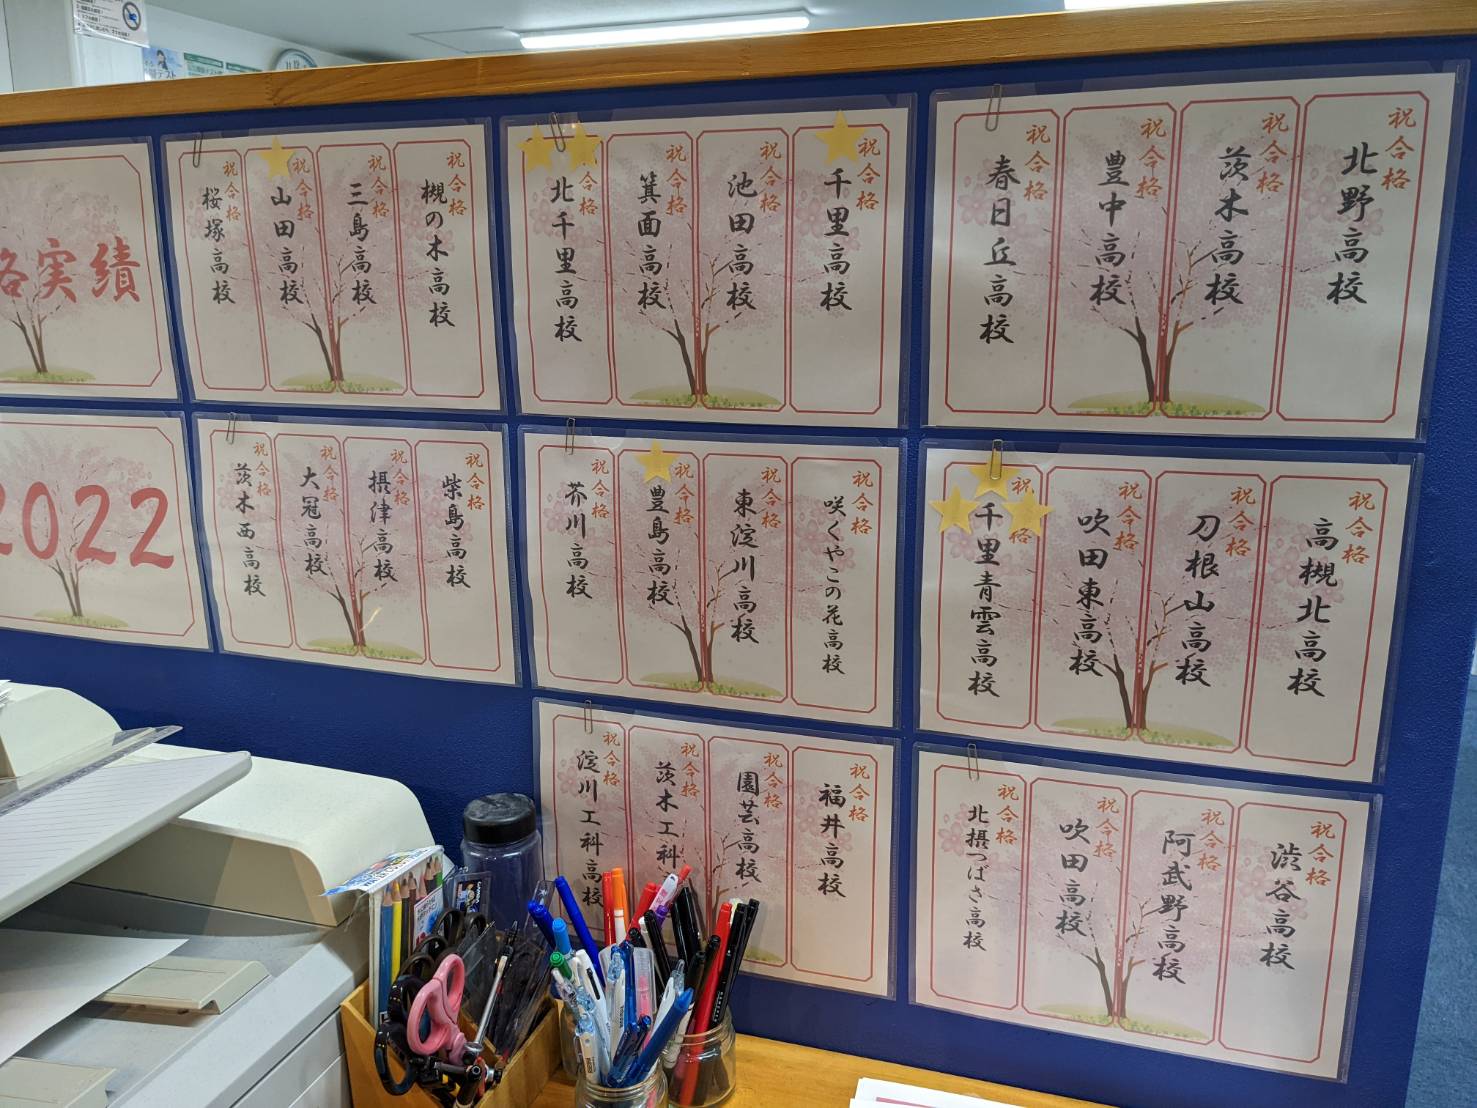 祝合格
北野高校
祝合格
茨木高校
祝合格
豊中高校
祝合格
春日丘高校
祝合格
千里高校
祝合格
池田高校
祝合格
箕面高校
祝合格
北千里高校
祝合格
槻の木高校
祝合格
三島高校
祝合格
山田高校
祝合格
桜塚高校
格実績
祝合格
高槻北高校
祝合格
刀根山高校
祝合格
吹田東高校
祝合格
千里青雲高校
祝合格
咲くやこの花高校
祝合格
東淀川高校
祝合格
豊島高校
祝合格
芥川高校
祝合格
柴島高校
祝合格
摂津高校
祝合格
大冠高校
祝合格
茨木西高校
2022
祝合格
渋谷高校
祝合格
阿武野高校
祝合格
吹田高校
祝合格
北摂つばさ高校
祝合格
福井高校
祝合格
園芸高校
祝合格
茨木工科
祝合格
淀川工科高校